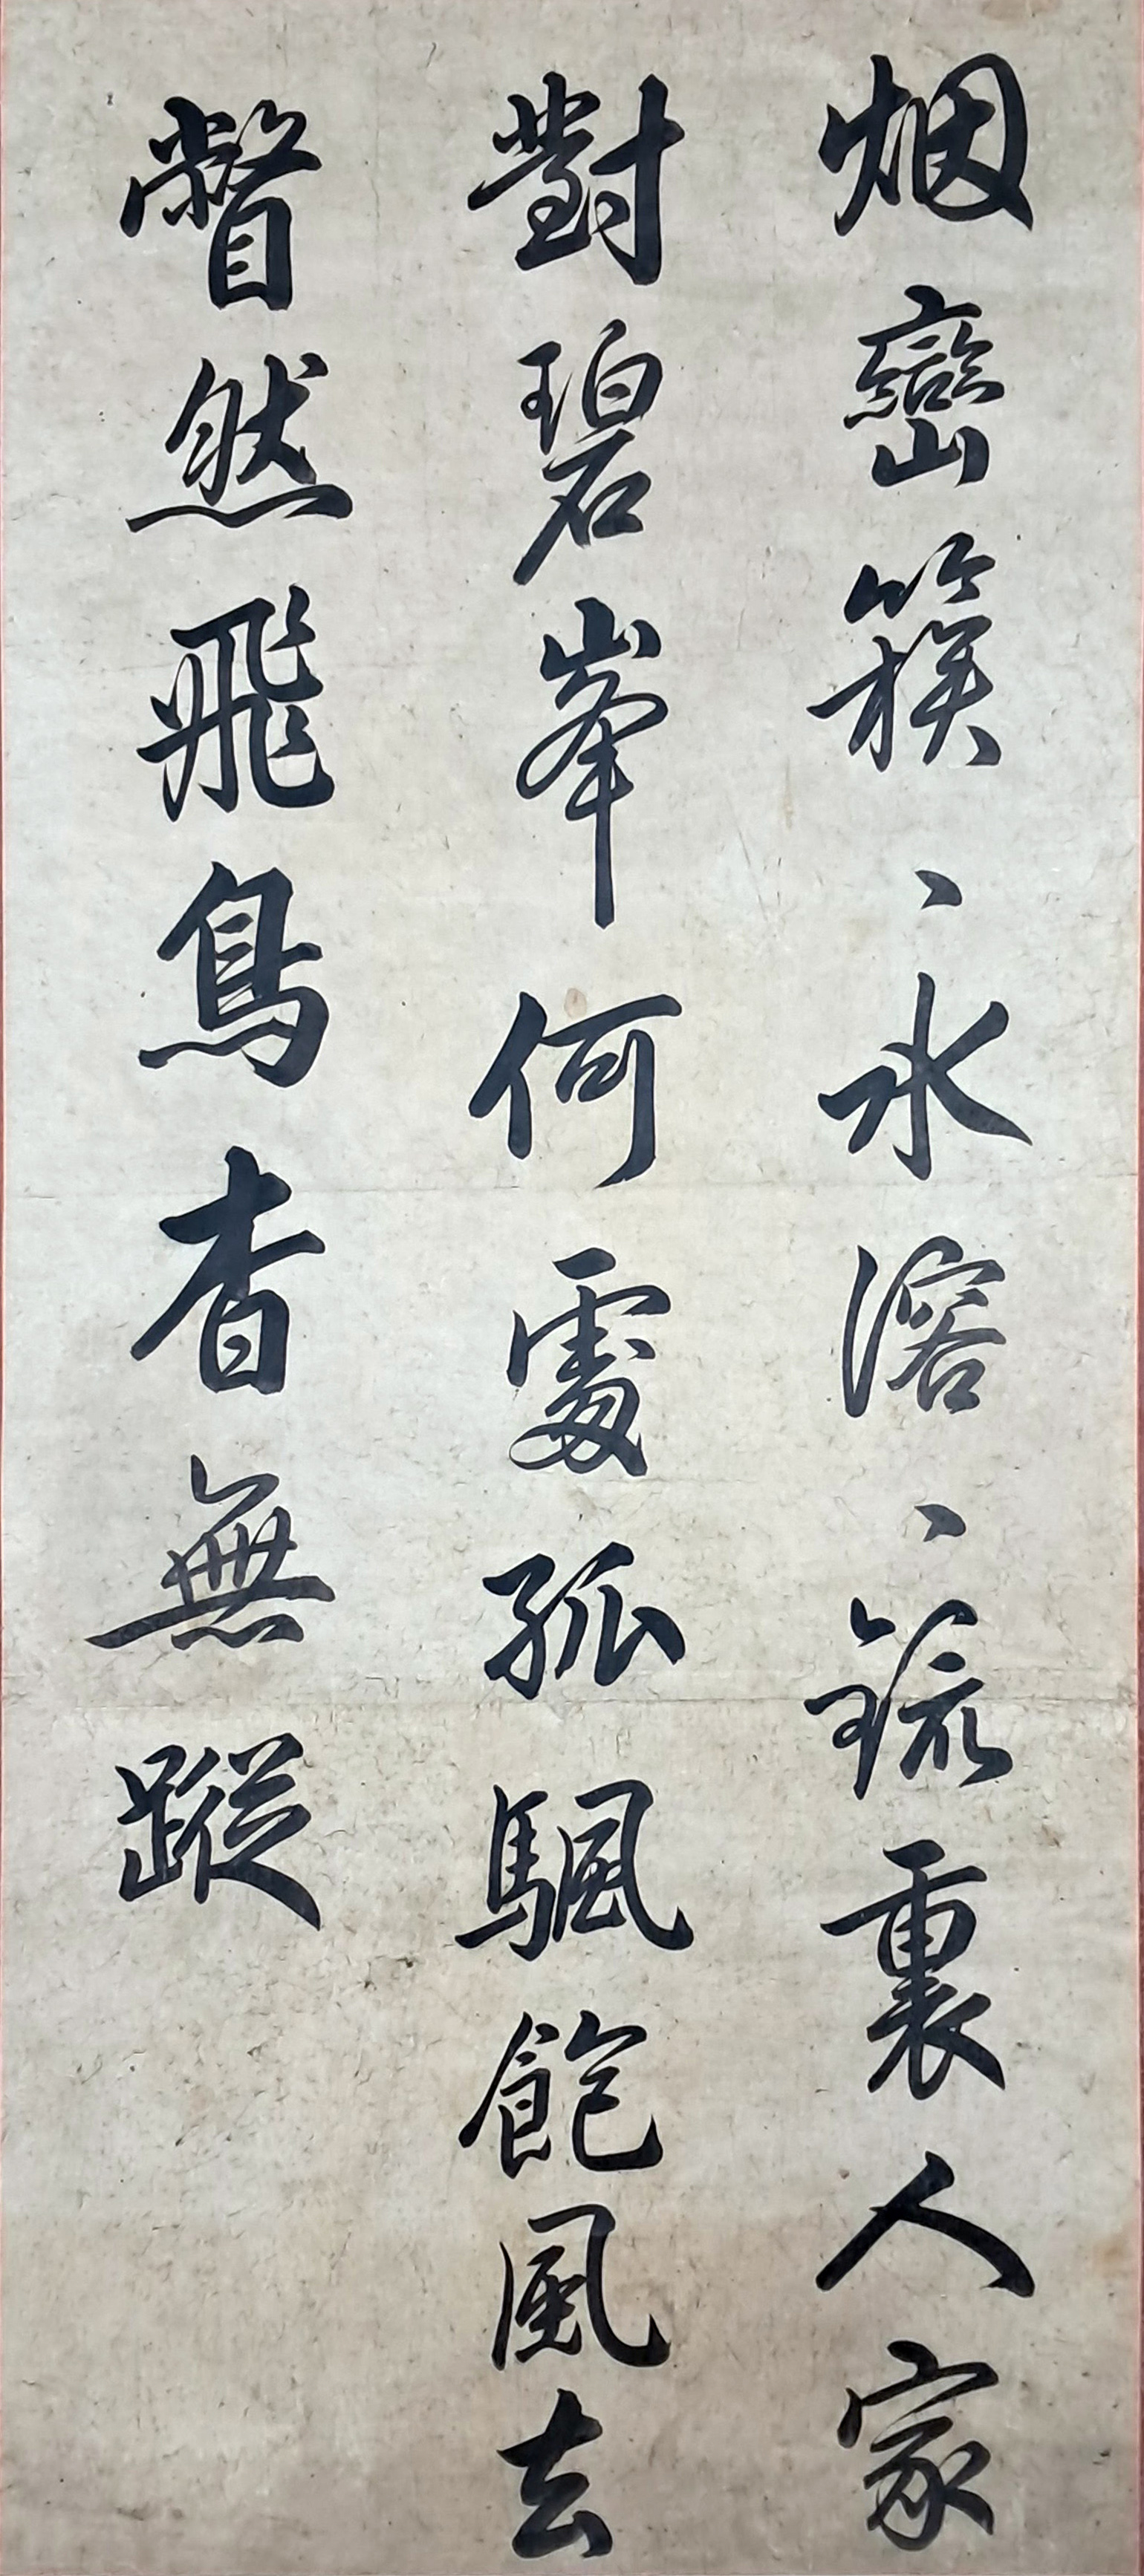 烟巒簇、水溶、鏡裏人家
對碧峯何處孤颿飽風去
瞥然飛鳥杳無蹤